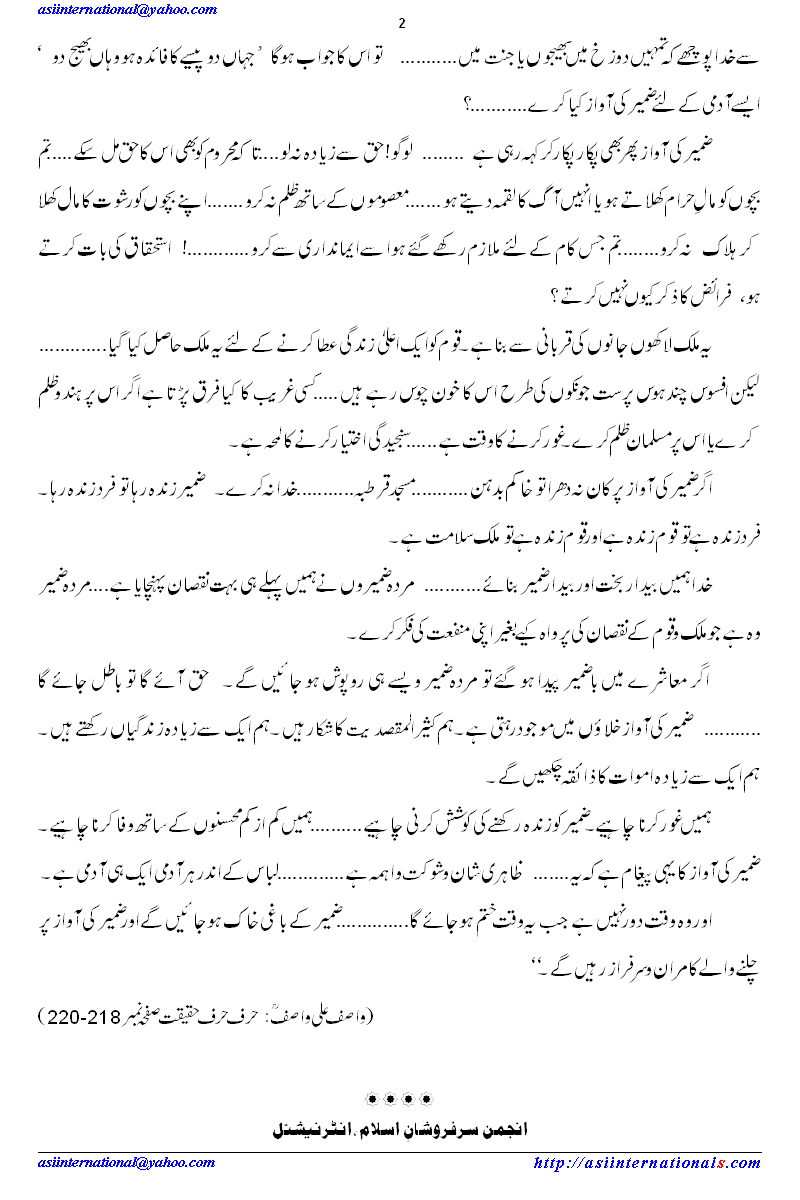 asiinternational@yahoo.com
2
سے خدا پوچھے کہ تمہیں دوزخ میں بھیجوں یا جنت میں........... تو اس کا جواب ہوگا ’جہاں دو پیسے کا فائدہ ہو وہاں بھیج دو ‘
ایسے آدمی کے لئے ضمیر کی آواز کیا کرے...........؟
ضمیر کی آواز پھر بھی پکار پکار کر کہہ رہی ہے ........ لوگو! حق سے زیادہ نہ لو....تا کہ محروم کو بھی اس کا حق مل سکے.....تم
بچوں کو مالِ حرام کھلاتے ہو یا انہیں آگ کا لقمہ دیتے ہو.......معصوموں کے ساتھ ظلم نہ کرو.......اپنے بچوں کو رشوت کا مال کھلا
کر ہلاک نہ کرو........تم جس کام کے لئے ملازم رکھے گئے ہو اسے ایمانداری سے کرو............! استحقاق کی بات کرتے
ہو، فرائض کا ذکر کیوں نہیں کرتے؟
یہ ملک لاکھوں جانوں کی قربانی سے بنا ہے۔قوم کو ایک اعلیٰ زندگی عطا کرنے کے لئے یہ ملک حاصل کیا گیا.............
لیکن افسوس چند ہوس پرست جونکوں کی طرح اس کا خون چوس رہے ہیں .....کسی غریب کا کیا فرق پڑتا ہے اگر اس پر ہندو ظلم
کرے یا اس پر مسلمان ظلم کرے۔غور کرنے کا وقت ہے......سنجیدگی اختیار کرنے کا لمحہ ہے۔
اگر ضمیر کی آواز پر کان نہ دھرا تو خاکم بدہن ...........مسجد قرطبہ...........خدا نہ کرے۔ ضمیر زندہ رہا تو فرد زندہ رہا۔
فرد زندہ ہے تو قوم زندہ ہے اور قوم زندہ ہے تو ملک سلامت ہے۔
خدا ہمیں بیدار بخت اور بیدار ضمیر بنائے ........... مردہ ضمیروں نے ہمیں پہلے ہی بہت نقصان پہنچایا ہے....مردہ ضمیر
وہ ہے جو ملک و قوم کے نقصان کی پرواہ کیے بغیر اپنی منفعت کی فکر کرے۔
اگر معاشرے میں باضمیر پیدا ہو گئے تو مردہ ضمیر ویسے ہی روپوش ہو جائیں گے۔ حق آئے گا تو باطل جائے گا
........... ضمیر کی آواز خلاؤں میں موجود رہتی ہے۔ہم کثیر المقصدیت کا شکار ہیں۔ہم ایک سے زیادہ زندگیاں رکھتے ہیں۔
ہم ایک سے زیادہ اموات کا ذائقہ چکھیں گے۔
ہمیں غور کرنا چاہیے۔ضمیر کو زندہ رکھنے کی کوشش کرنی چاہیے..........ہمیں کم از کم محسنوں کے ساتھ وفا کرنا چاہیے۔
ضمیر کی آواز کا یہی پیغام ہے کہ یہ....... ظاہری شان و شوکت واہمہ ہے.............لباس کے اندر ہر آدمی ایک ہی آدمی ہے۔
اور وہ وقت دور نہیں ہے جب یہ وقت ختم ہو جائے گا..............ضمیر کے باغی خاک ہو جائیں گے اور ضمیر کی آواز پر
چلنے والے کامران و سرفراز رہیں گے۔‘‘
(واصف علی واصفؒ: حرف حرف حقیقت صفحہ نمبر 218-220)
انجمن سرفروشانِ اسلام ،انٹرنیشنل
asiinternational@yahoo.com http://asiinternationals.com